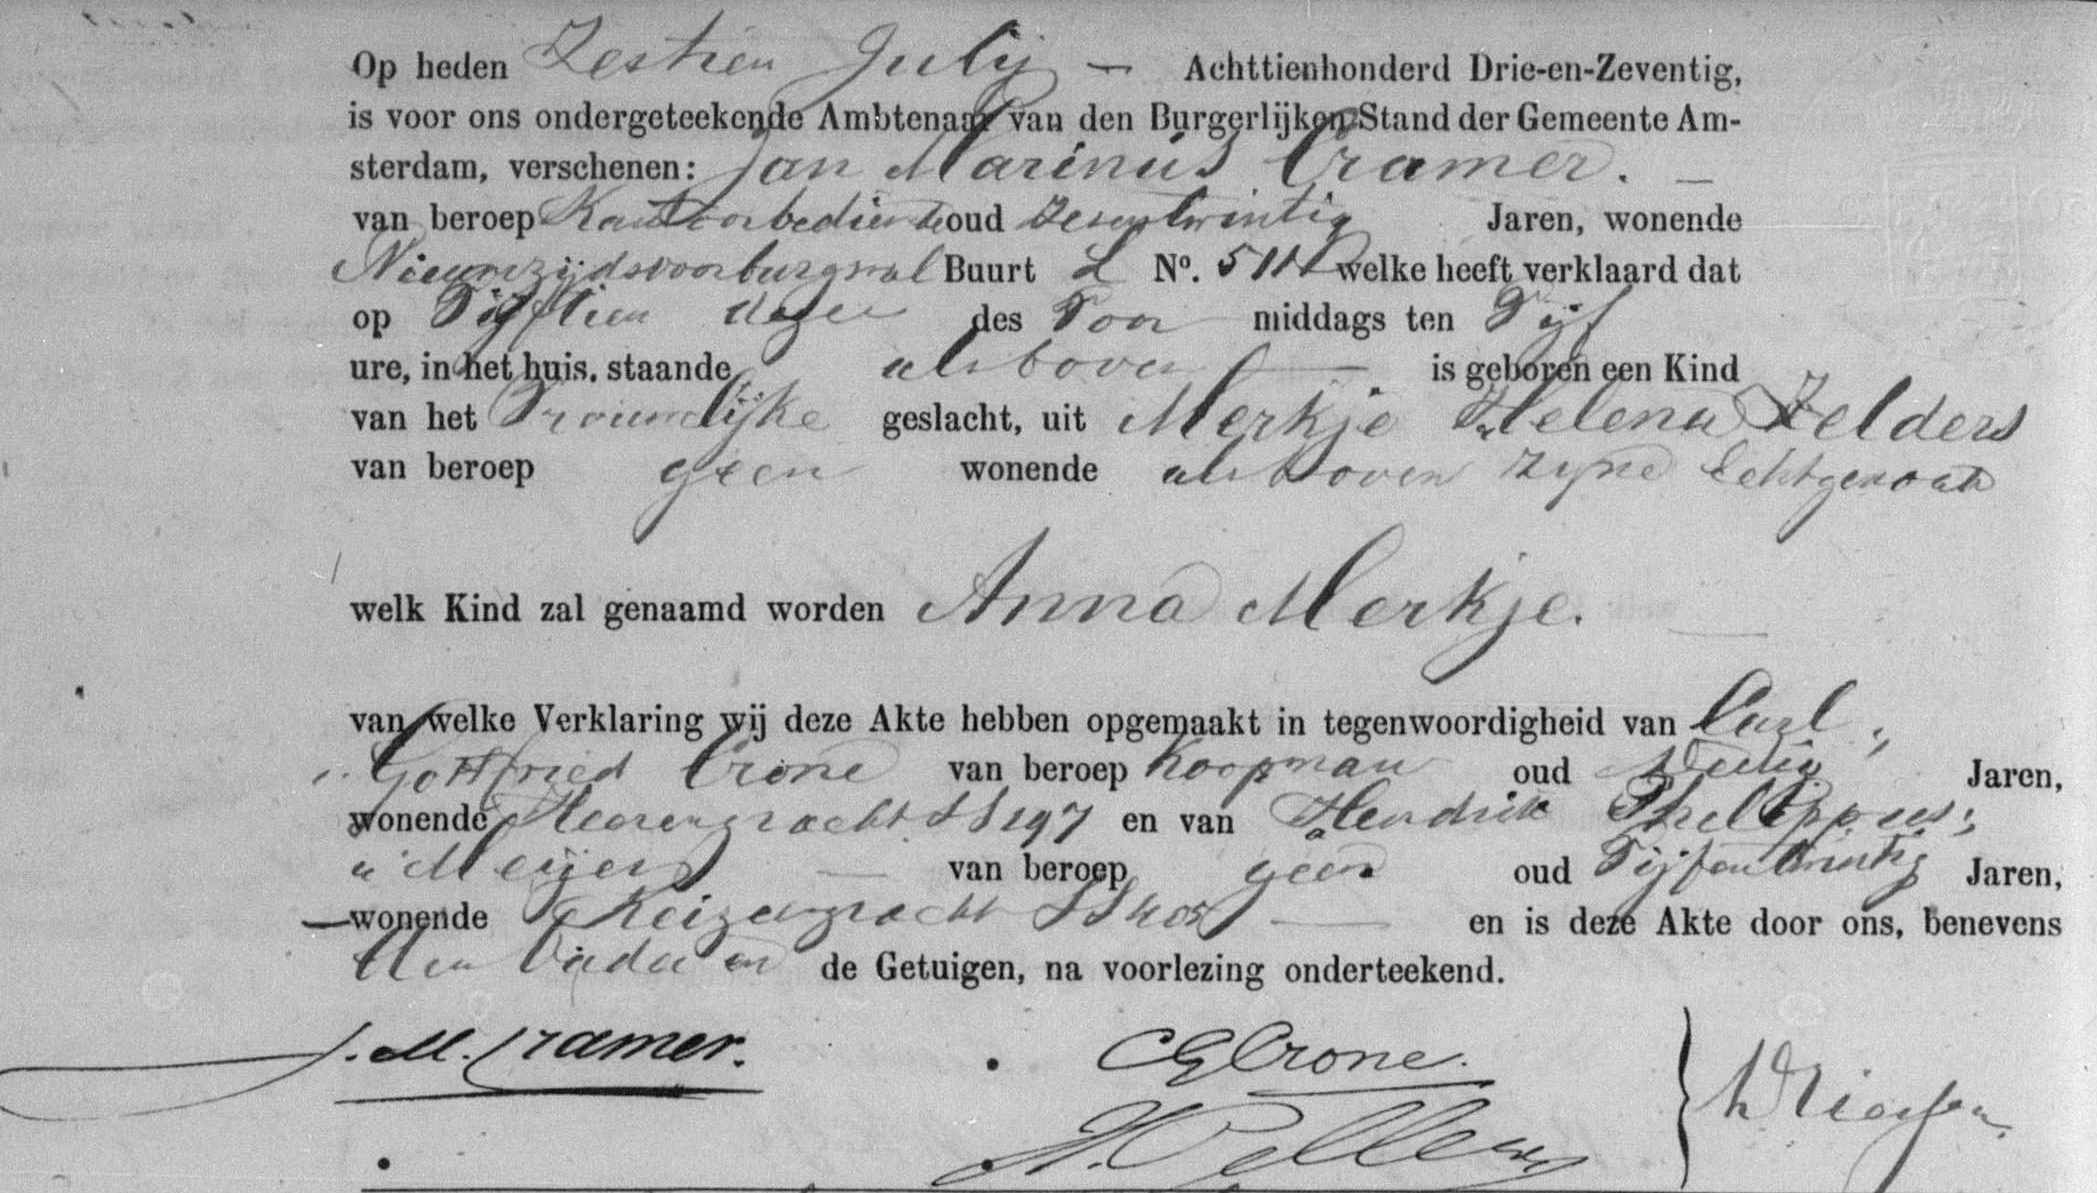 Op heden Zestien Julij — Achttienhonderd Drie-en-Zeventig,
is voor ons ondergeteekende Ambtenaar van den Burgerlijken Stand der Gemeente Am-
sterdam, verschenen: Jan Marinus Cramer. —
van beroep Kantoorbediende oud zesentwintig Jaren, wonende
Nieuwezijdsvoorburgwal Buurt L No. 511 welke heeft verklaard dat
op Vijftien dezer des Voor middags ten Vijf
ure, in het huis, staande alsboven — is geboren een Kind
van het Vrouwelijke geslacht, uit Merkje Helena Zelders
van beroep geen wonende alsboven zijne Echtgenoote
welk Kind zal genaamd worden Anna Merkje. —
van welke Verklaring wij deze Akte hebben opgemaakt in tegenwoordigheid van Carl
Gottfried Crone van beroep Koopman oud Jaren,
wonende Heerengracht 197 en van Hendrik Philippus
Meijer — van beroep geen oud Vijfentwintig Jaren,
— wonende Keizersgracht — en is deze Akte door ons, benevens
den Vader en de Getuigen, na voorlezing onderteekend.
J. M. Cramer.
C G Crone.